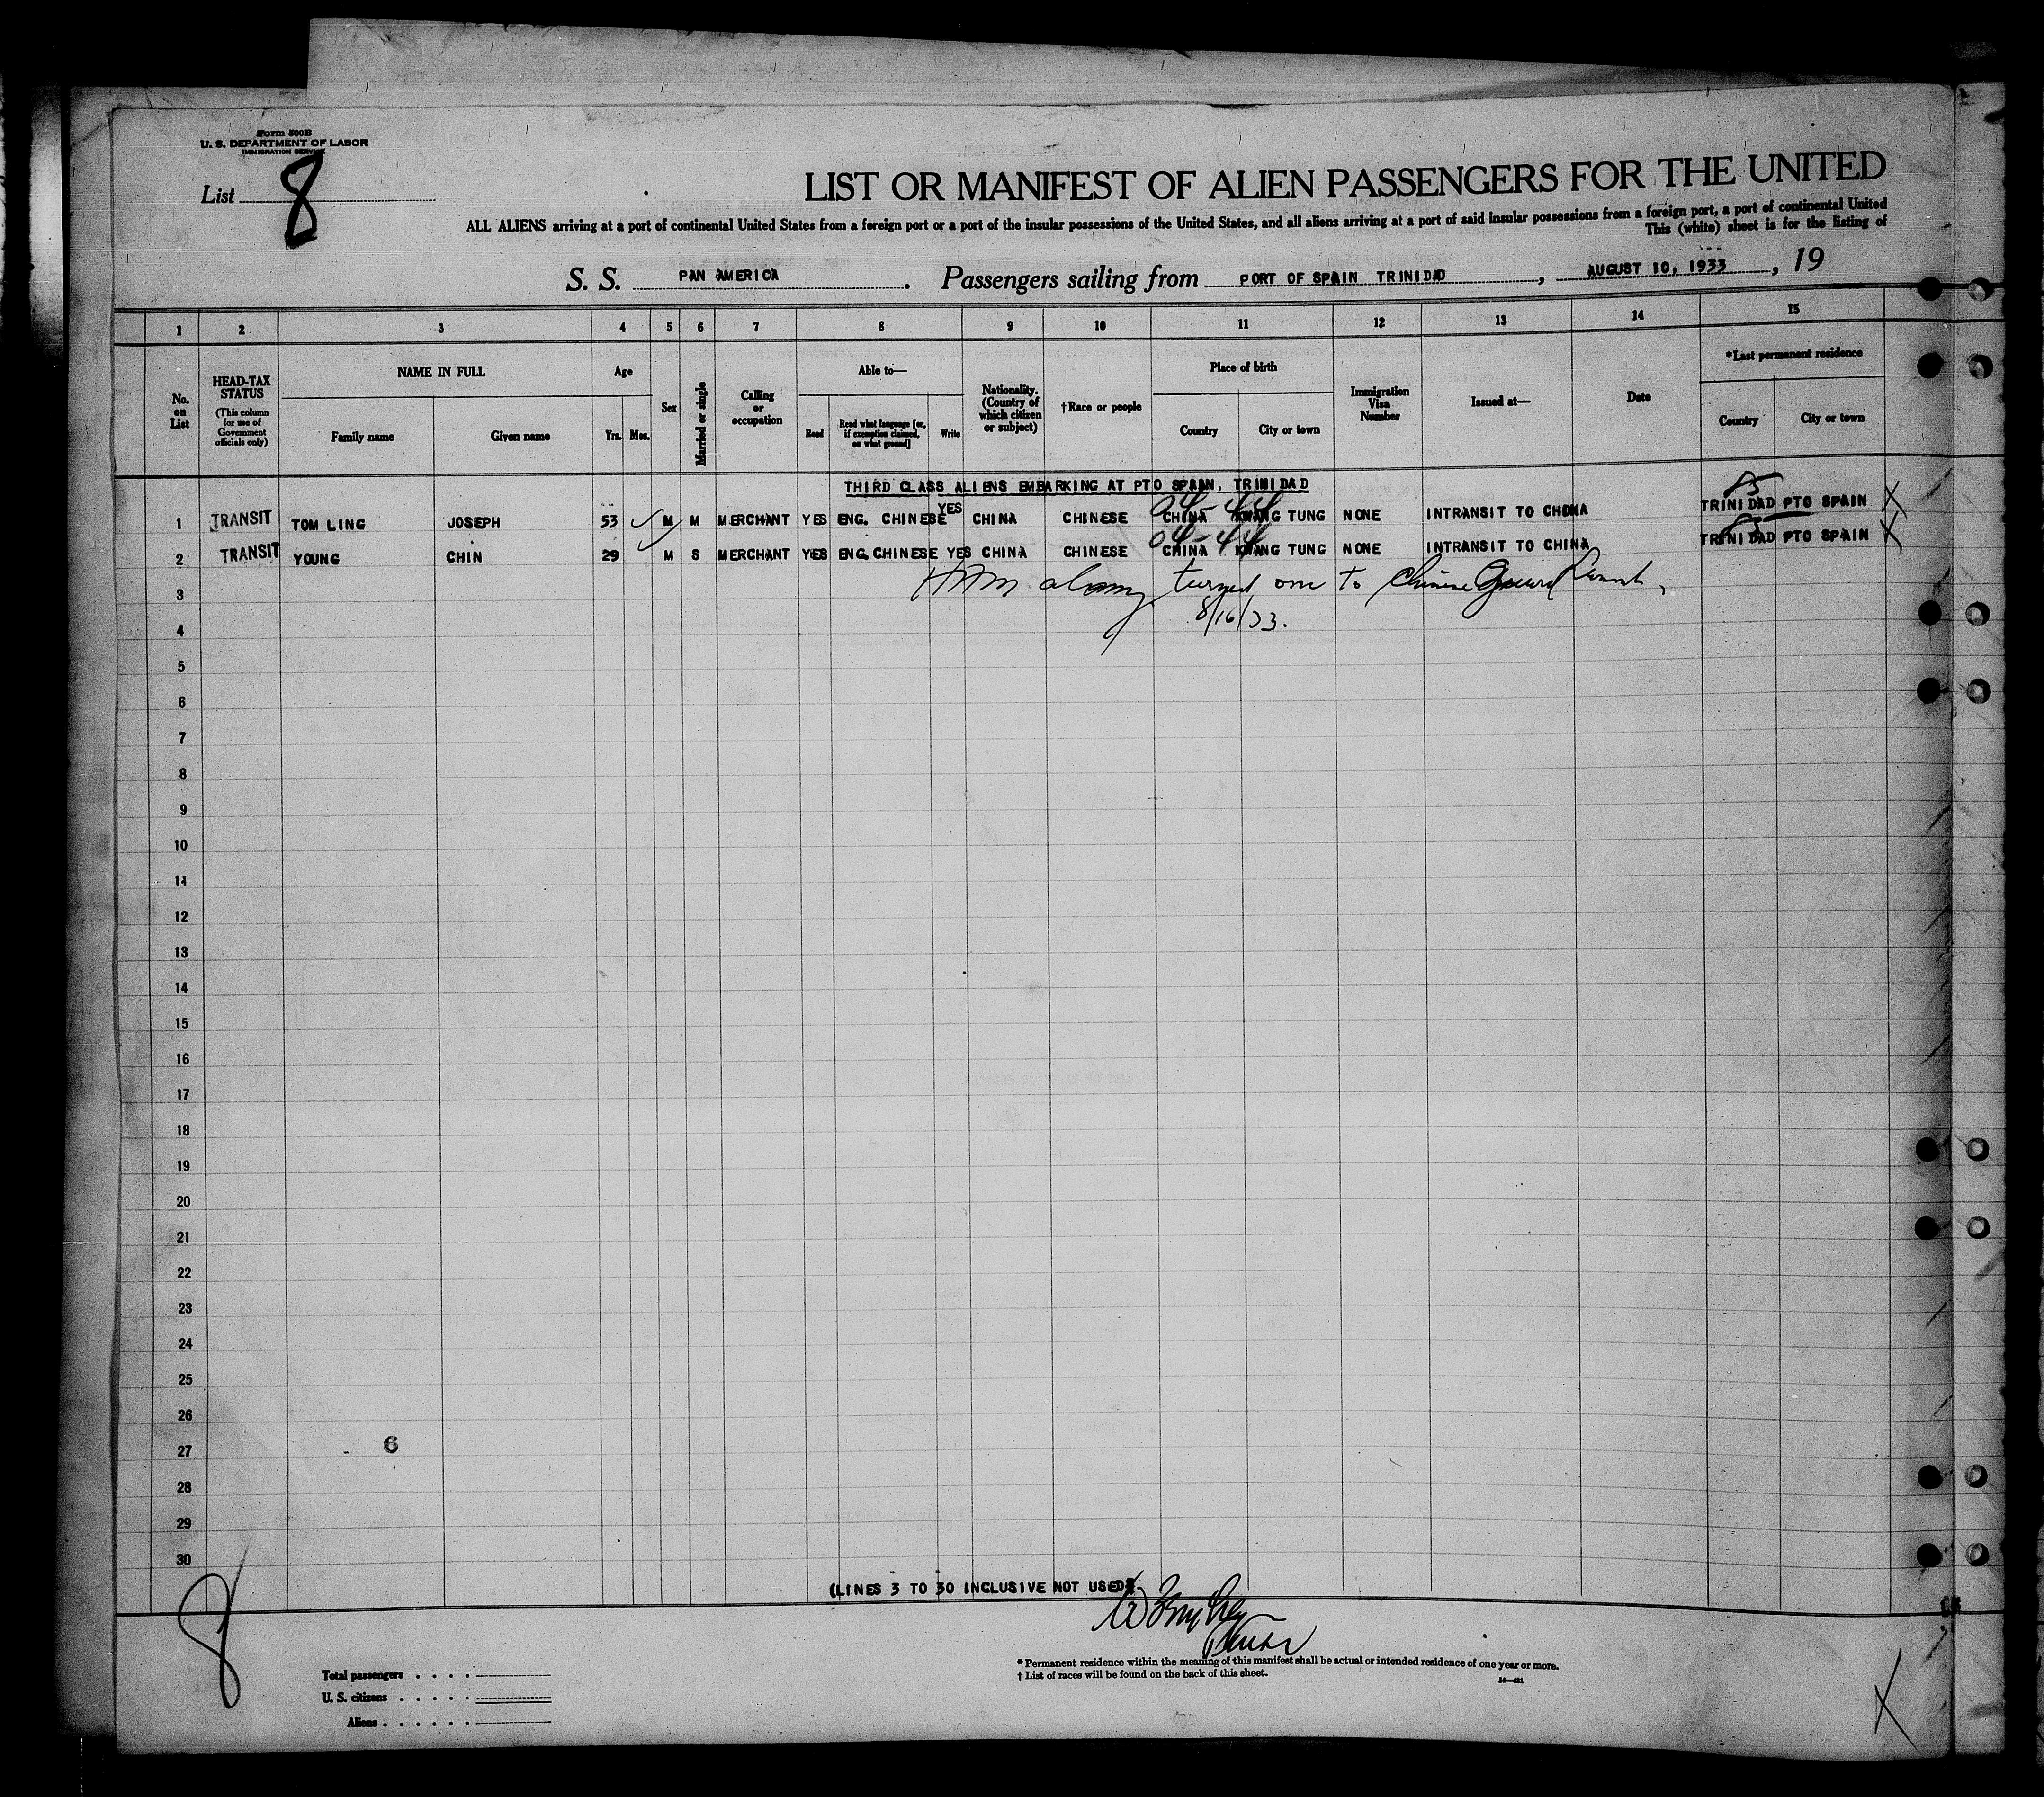 Form 500B
U. S. DEPARTMENT OF LABOR
IMMIGRATION SERVICE
List 8
LIST OR MANIFEST OF ALIEN PASSENGERS FOR THE UNITED
ALL ALIENS arriving at a port of continental United States from a foreign port or a port of the insular possessions of the United States, and all aliens arriving at a port of said insular possessions from a foreign port, a port of continental United
This (white) sheet is for the listing of
S. S. PAN AMERICA . Passengers sailing from PORT OF SPAIN TRINIDAD , AUGUST 10, 1933 , 19
1 2 3 4 5 6 7 8 9 10 11 12 13 14 15
No. on List
HEAD-TAX STATUS
(This column for use of Government officials only)
NAME IN FULL
Family name Given name
Age
Yrs. Mos.
Sex
Married or single
Calling or occupation
Able to—
Read
Read what language [or, if exemption claimed, on what ground]
Write
Nationality. (Country of which citizen or subject)
†Race or people
Place of birth
Country City or town
Immigration Visa Number
Issued at—
Date
*Last permanent residence
Country City or town
THIRD CLASS ALIENS EMBARKING AT PTO SPAIN, TRINIDAD
1 TRANSIT TOM LING JOSEPH 53 M M MERCHANT YES ENG. CHINESE YES CHINA CHINESE CHINA KWANG TUNG NONE INTRANSIT TO CHINA TRINIDAD PTO SPAIN X
2 TRANSIT YOUNG CHIN 29 M S MERCHANT YES ENG. CHINESE YES CHINA CHINESE CHINA KWANG TUNG NONE INTRANSIT TO CHINA TRINIDAD PTO SPAIN X
3
turned over to Chinese
4
8/16/33.
5
6
7
8
9
10
11
12
13
14
15
16
17
18
19
20
21
22
23
24
25
26
27
6
28
29
30
(LINES 3 TO 30 INCLUSIVE NOT USED)
8
Total passengers . . . .
U. S. citizens . . . . .
Aliens . . . . . .
* Permanent residence within the meaning of this manifest shall be actual or intended residence of one year or more.
† List of races will be found on the back of this sheet.
X